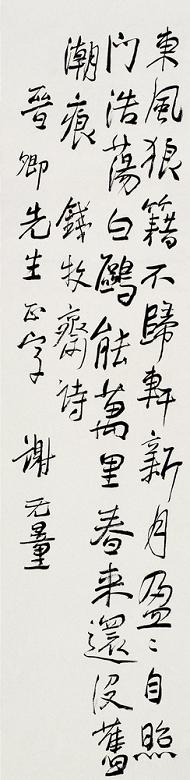 東風狼籍不歸軒新月盈〻自照
門浩蕩白鷗能萬里春来還沒舊
潮痕 錢牧齋詩
晉卿先生正字 謝无量